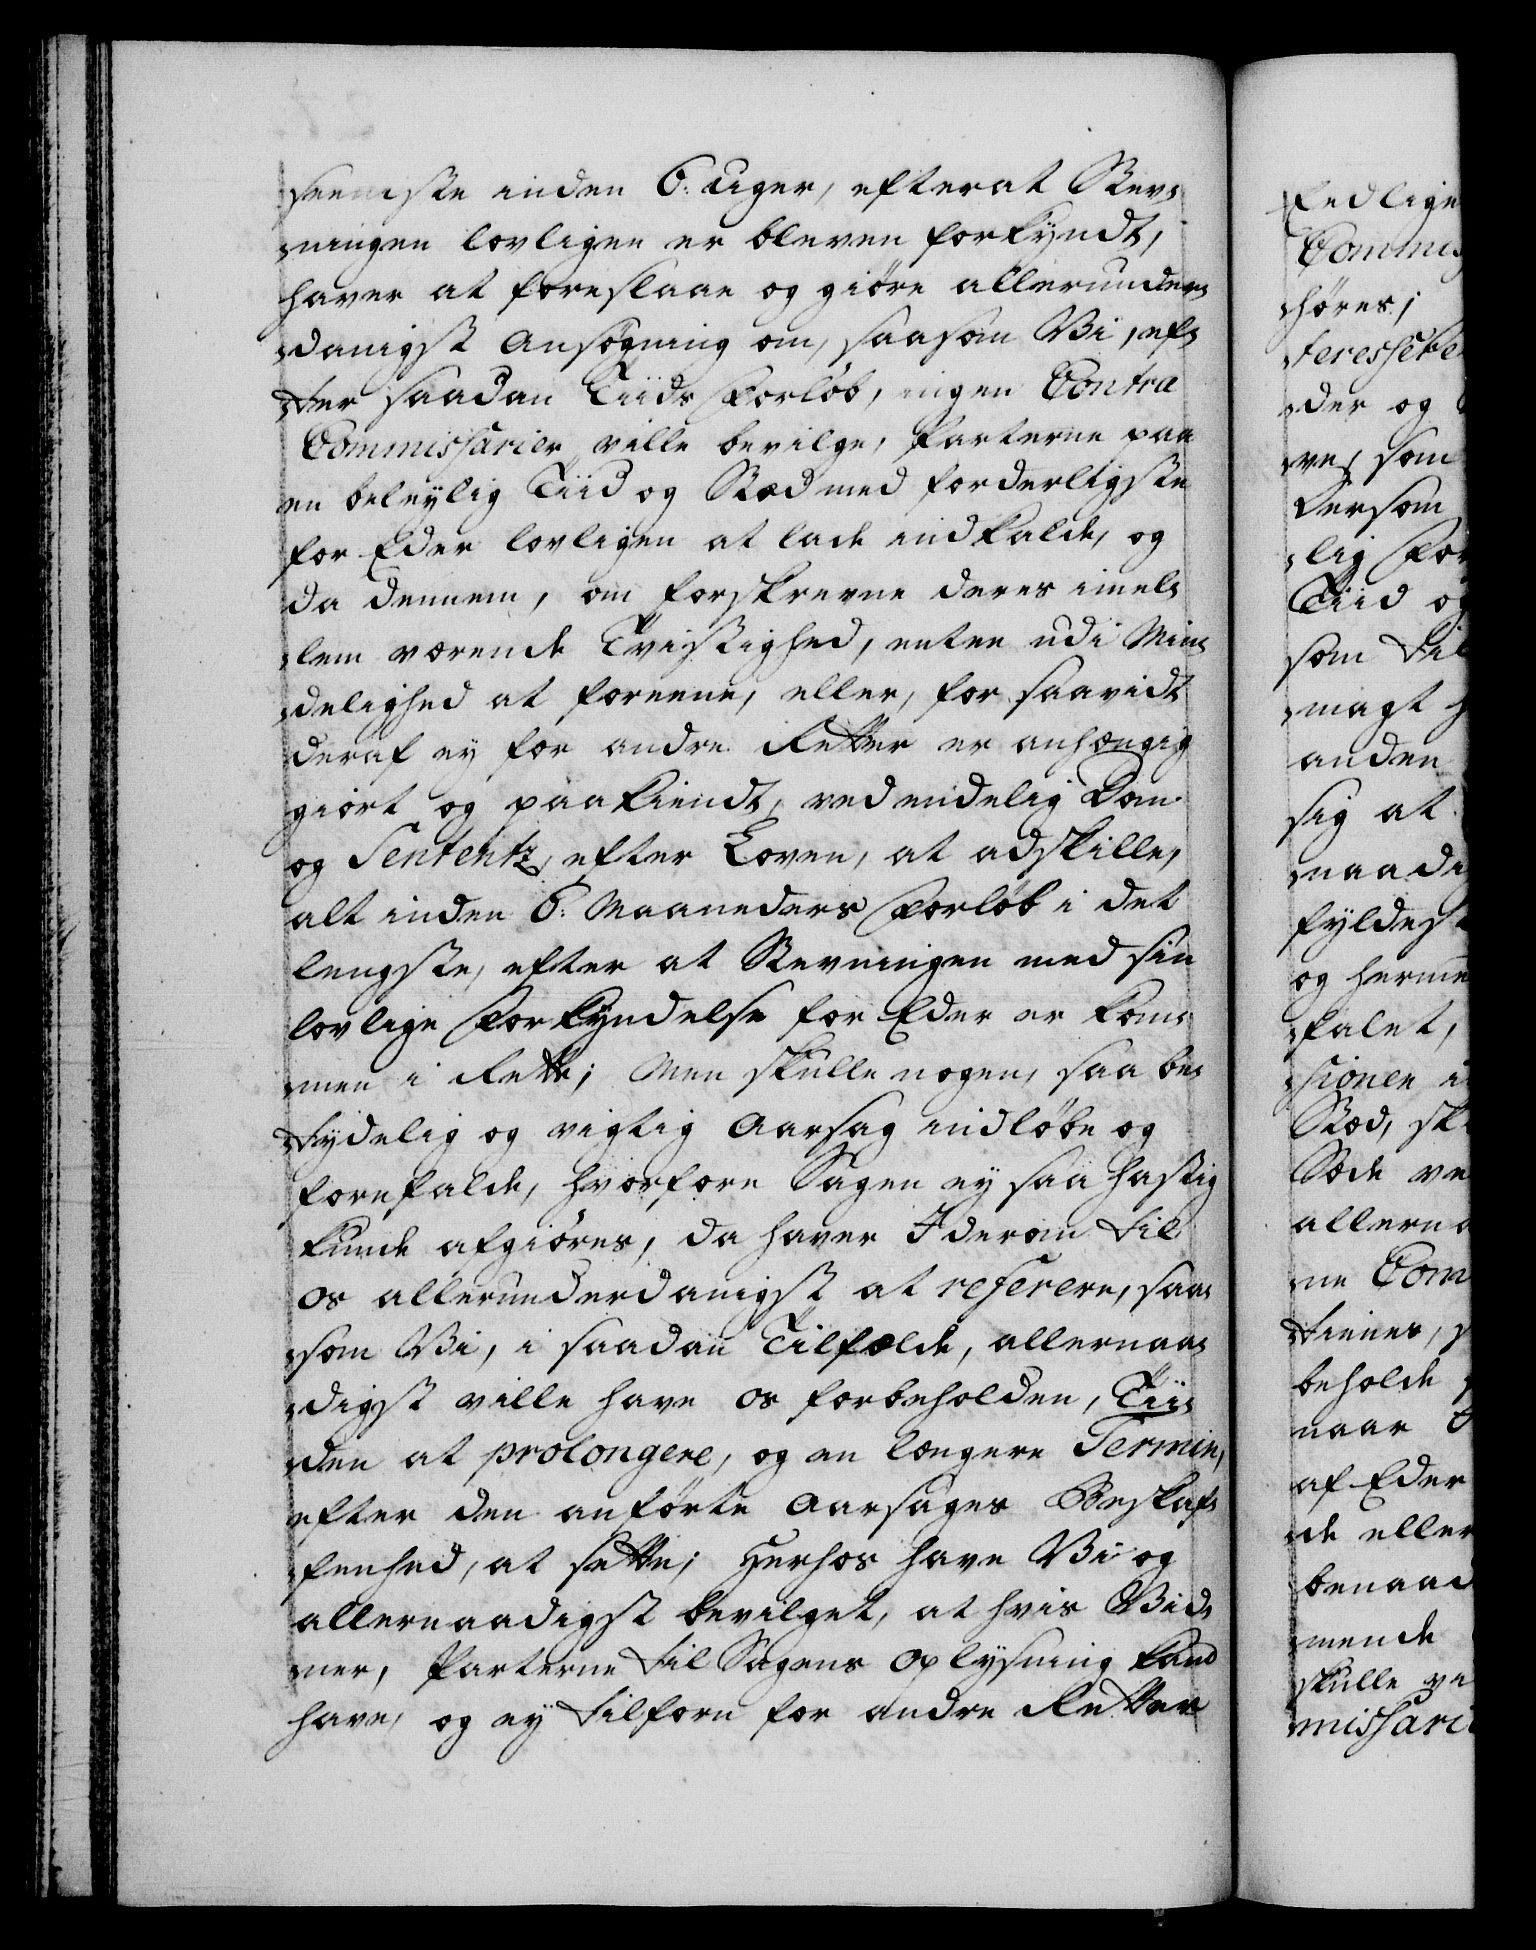 seeniste inden 6: Uger, efterat Stev-
ningen lovligen er bleven forkyndt,
haver at foreslaae og giöre allerunder-
danigst Ansögning om, saasom Vi, ef-
ter saadan Tiids Forlöb, ingen Contra
Commissarier ville bevilge, Parterne paa
en beleylig Tiid og Stæd med forderligste
for Eder lovligen at lade indkalde, og
da dennem, om forskrevne deres imel-
lem værende Tvistighed, enten udi Min-
delighed at foreene, eller, for saavidt
deraf ey for andre Retter er anhængig
giort og paakiendt, ved endelig Dom
og Sententz, efter Loven, at adskille,
alt inden 6: Maaneders Forlöb i det
lengste, efter at Stevningen med sin
lovlige Forkyndelse for Eder er kom-
men i Rette; Men skulle nogen, saa be-
tydelig og vigtig Aarsag indlöbe og
forefalde, hvorfore Sagen ey saa hastig
kunde afgiöres, da haver I derom til
os allerunderdanigst at referere, saa-
som Vi, i saadan Tilfælde, allernaa-
digst ville have os forbeholden, Tii-
den at prolongere, og en længere Termin,
efter den anförte Aarsages Beskaf-
fenhed, at sette; Herhos have Vi og
allernaadigst bevilget, at hvis Vid-
ner, Parterne til Sagens Oplysning kand
have, og ey tilforn for andre Retter
Eedlige
Commis
höres;
teressere
der og
ves som
Dersom
lig For
Tiid og
som til
magt h
anden
sig at
naadi
fyldest
og herme
falet,
sionen i
Stæd, sk
Stæde ve
allerna
ne Com
tienes, s
beholde
naar
af Eder
de eller
benaad
mende
skulle ve
missari